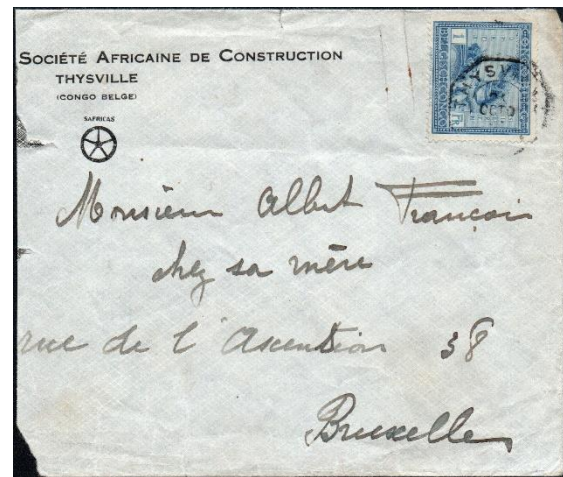 SOCIÉTÉ AFRICAINE DE CONSTRUCTION
THYSVILLE
(CONGO BELGE)
SAFRICAS
1
FR
THYSV
OCTO
Monsieur Albert François
chez sa mère
rue de l'Ascention 38
Bruxelles